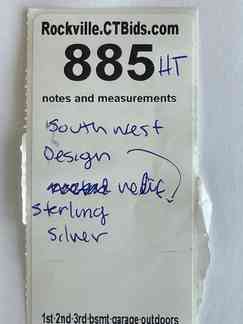 Rockville.CTBids.com
885 HT
notes and measurements
South west
Design
sterling
Silver
1st·2nd·3rd·bsmt·garage·outdoors